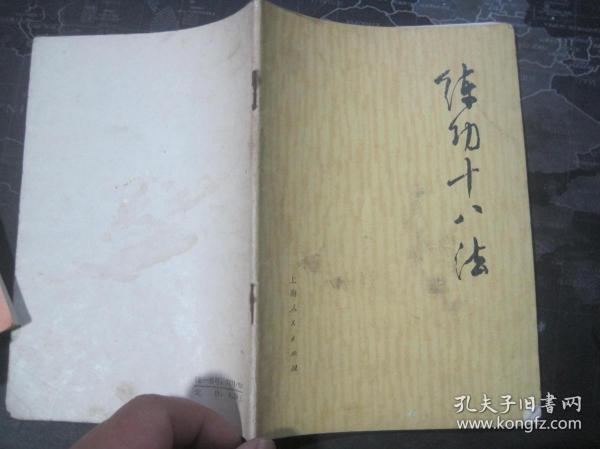 练功十八法
上海人民出版社
孔夫子旧书网
www.kongfz.com